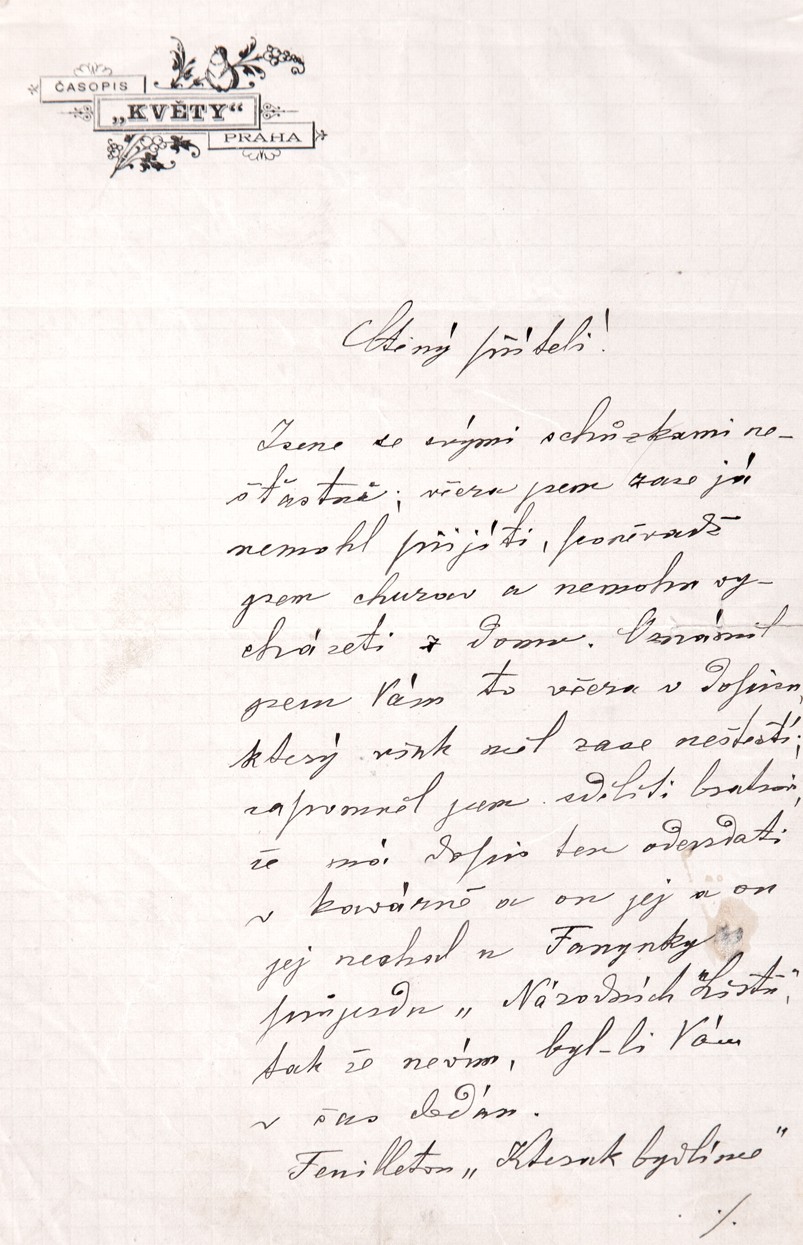 ČASOPIS
„KVĚTY“
PRAHA
Ctěný příteli!
Jsme se svými schůzkami ne-
šťastně; včera jsem zase já
nemohl přijíti, poněvadž
jsem churav a nemohu vy-
cházeti z domu. Oznámil
jsem Vám to včera v dopisu,
který však měl zase neštěstí;
zapomněl jsem sděliti bratrovi,
že má dopis ten odevzdati
v kavárně a on jej a on
jej nechal u Fanynky
průjezdu „Národních Listů“,
tak že nevím, byl-li Vám
v čas dodán.
Feuilleton „Kterak bydlíme“
./.